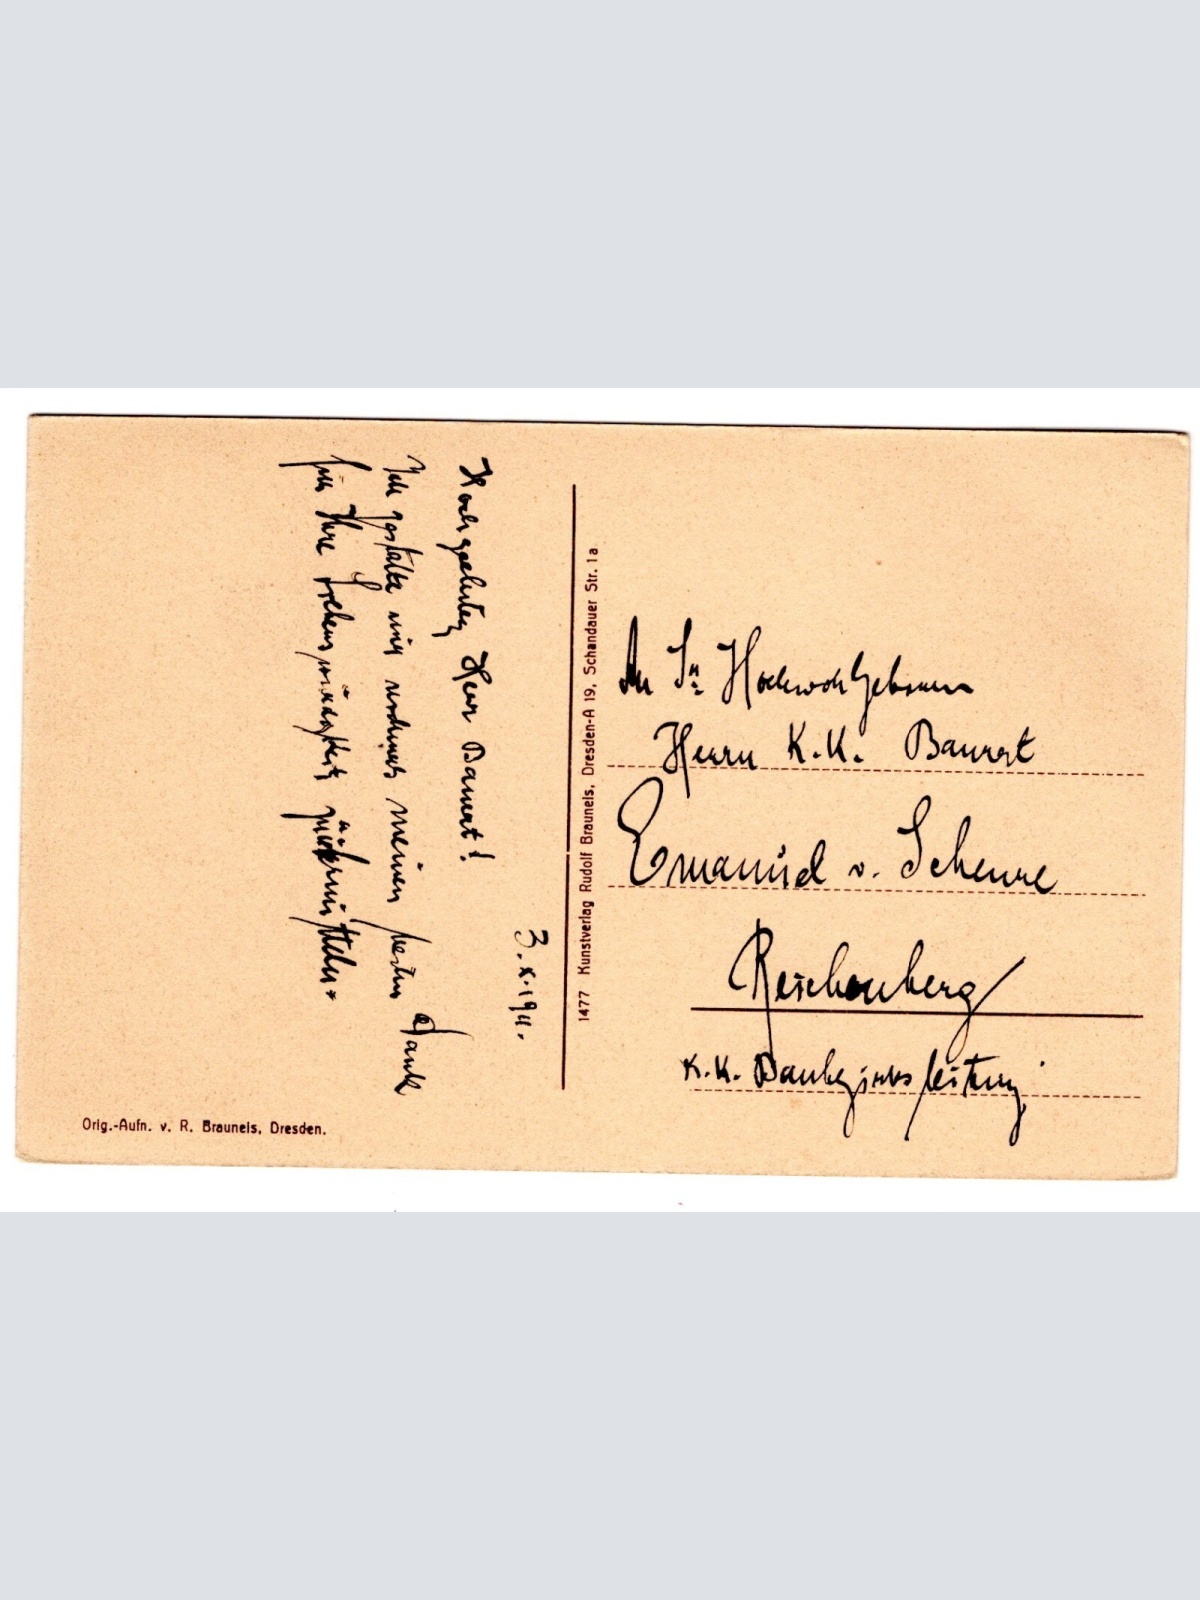 3.X.1911.
Hochgeehrter Herr Baurat!
Ich gestatte mir nochmals meinen besten Dank
für Ihre Liebenswürdigkeit
1477 Kunstverlag Rudolf Brauneis, Dresden-A 19, Schandauer Str. 1a
An Sr. Hochwohlgeboren
Herrn K.K. Baurat
Emanuel v. Scheure
Reichenberg
K.K. Baubezirksleitung
Orig.-Aufn. v. R. Brauneis, Dresden.